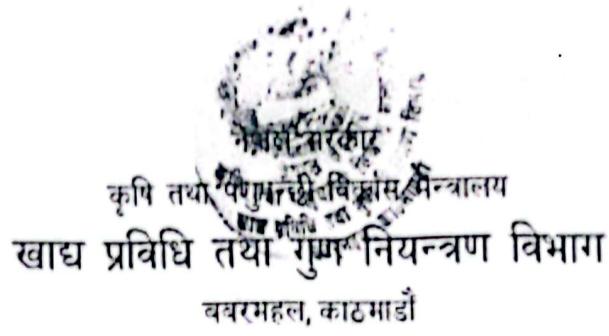 नेपाल सरकार
कृषि तथा पशुपन्छी विकास मन्त्रालय
खाद्य प्रविधि तथा गुण नियन्त्रण विभाग
ववरमहल, काठमाडौं